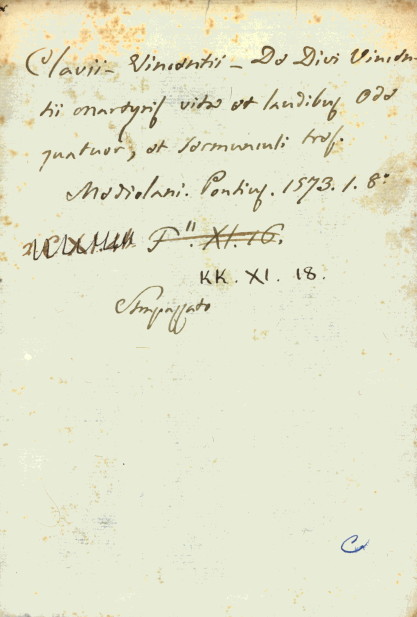 Clavii - Vincentii - De Divi Vincen-
tii martyris vita et laudibus Odae
quatuor, et sermunculi tres.
Mediolani. Pontius. 1573. 1. 8:
F". XI. 16.
KK. XI. 18.